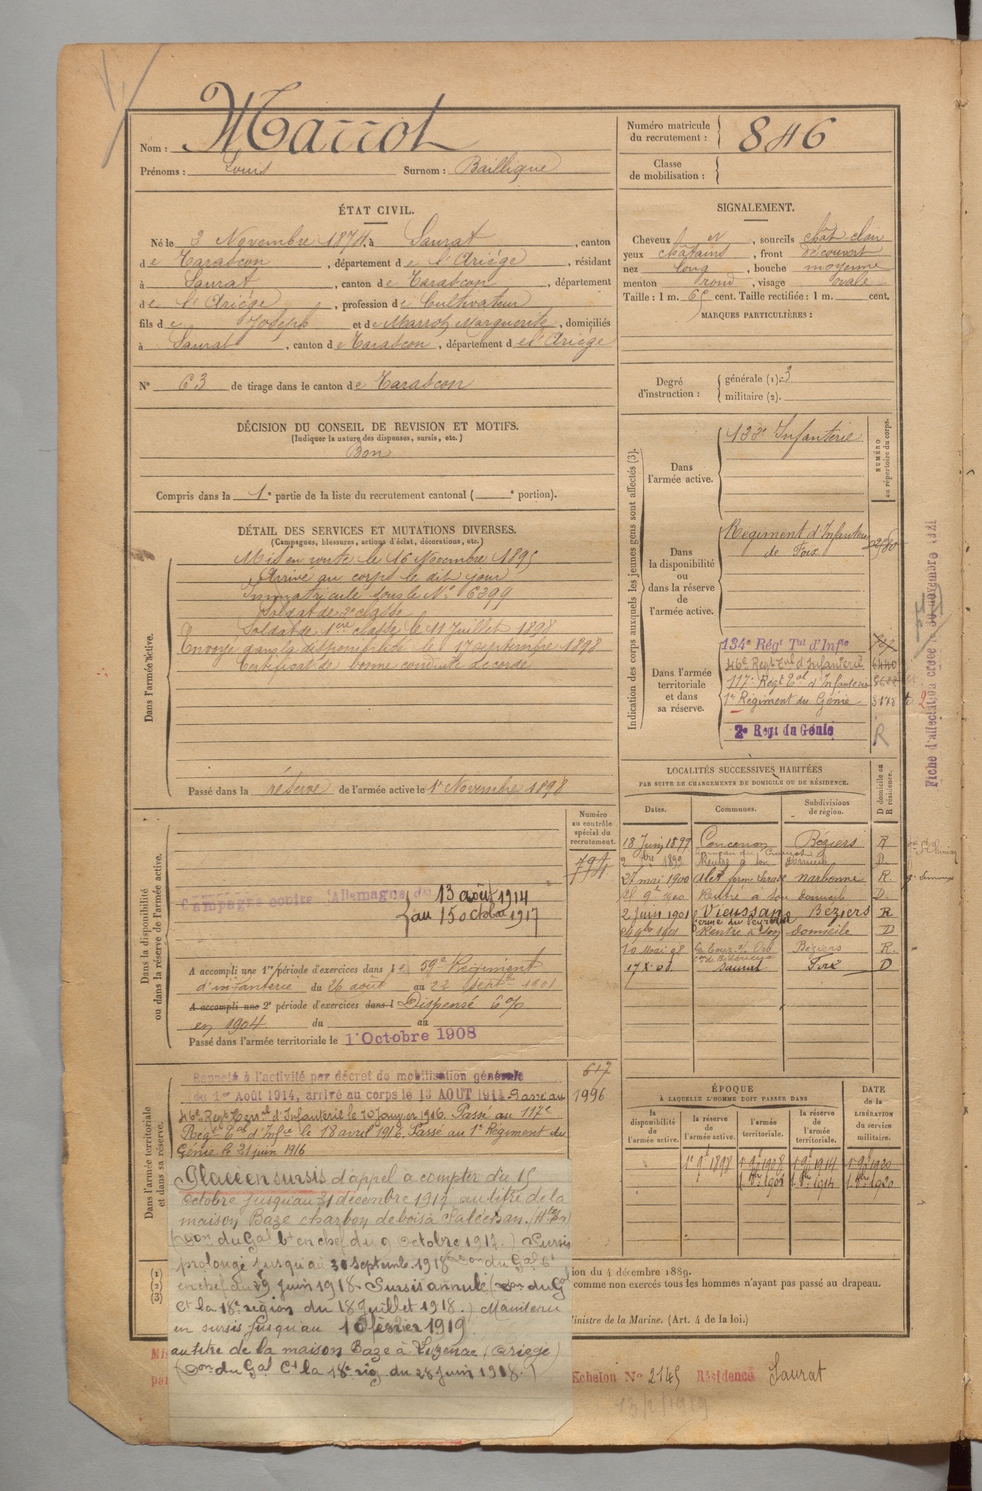 Nom : Marrot
Prénoms : Louis Surnom : Baillique
Numéro matricule du recrutement : 846
Classe de mobilisation :
ÉTAT CIVIL.
Né le 3 Novembre 1874, à Saurat, canton
de Tarascon, département de l'Ariège, résidant
à Saurat, canton de Tarascon, département
de l'Ariège, profession de Cultivateur
fils de Joseph et de Marrot Marguerite, domiciliés
à Saurat, canton de Tarascon, département de l'Ariège
N° 63 de tirage dans le canton de Tarascon
DÉCISION DU CONSEIL DE REVISION ET MOTIFS.
(Indiquer la nature des dispenses, sursis, etc.)
Bon
Compris dans la 1e partie de la liste du recrutement cantonal ( e portion).
DÉTAIL DES SERVICES ET MUTATIONS DIVERSES.
(Campagnes, blessures, actions d'éclat, décorations, etc.)
Dans l'armée active.
Mis en route le 16 Novembre 1895
Arrivé au corps le dit jour
Immatriculé sous le N° 6399
Soldat de 2e classe
Soldat de 1ère classe le 11 Juillet 1898
Envoyé dans la disponibilité le 17 septembre 1898
Certificat de bonne conduite accordé
Passé dans la réserve de l'armée active le 1er Novembre 1898
Numéro au contrôle spécial du recrutement.
Dans la disponibilité ou dans la réserve de l'armée active.
Campagne contre l'Allemagne du 13 août 1914
au 15 octobre 1917
A accompli une 1re période d'exercices dans le 59e Régiment
d'infanterie du 26 août au 22 septbre 1901
A accompli une 2e période d'exercices dans l Dispensé 6%
en 1904 du au
Passé dans l'armée territoriale le 1er Octobre 1908
617
1996
Dans l'armée territoriale et dans sa réserve.
Rappelé à l'activité par décret de mobilisation générale
du 1er Août 1914, arrivé au corps le 13 AOUT 1914 Passé au
46e Regt Terral d'Infanterie le 10 Janvier 1916. Passé au 117e
Regt Tal d'Infie le 18 avril 1916, Passé au 1er Régiment du
Génie le 21 juin 1916
Placé en sursis d'appel à compter du 15
Octobre jusqu'au 31 décembre 1917 au titre de la
maison Baze charbon de bois à
(Don du Gal Ct en chef du 9 octobre 1917.) Sursis
prolongé jusqu'au 30 septembre 1918 Don du Gal Ct
en chef du 29 juin 1918. Sursis annulé (Don du Gal
Ct la 18e région du 18 Juillet 1918.) Maintenu
en sursis jusqu'au 10 février 1919
au titre de la maison Baze à Luzenac (Ariège)
(Don du Gal Ct la 18e rég. du 28 juin 1918.)
SIGNALEMENT.
Cheveux et, sourcils chât clair
yeux châtains, front découvert
nez long, bouche moyenne
menton rond, visage ovale
Taille : 1 m. 65 cent. Taille rectifiée : 1 m. cent.
MARQUES PARTICULIÈRES :
Degré d'instruction : générale (1) 3
militaire (2).
Indication des corps auxquels les jeunes gens sont affectés (3).
NUMÉRO au répertoire du corps.
Dans l'armée active.
133e Infanterie
Dans la disponibilité ou dans la réserve de l'armée active.
Régiment d'Infanterie
de Foix
Dans l'armée territoriale et dans sa réserve.
134e Régt Tal d'Infie
46e Regt Tal d'Infanterie 6440
117e Regt Tal d'Infanterie
1er Régiment du Génie
2e Regt du Génie R
Fiche d'affectation créée le 30 novembre 1921
LOCALITÉS SUCCESSIVES HABITÉES
PAR SUITE DE CHANGEMENTS DE DOMICILE OU DE RÉSIDENCE.
Dates. Communes. Subdivisions de région. D domicile ou R résidence.
18 Juin 1899 Béziers R
1899 Rentré à son domicile D.
27 mai 1900 Alet Narbonne R
28 9bre 1900 Rentré à son domicile D.
2 Juin 1901 Vieussan Béziers R
9bre 1901 Rentré à son domicile D
10 Mai 08 Béziers R.
17 X 08 Saurat Foix D
ÉPOQUE
À LAQUELLE L'HOMME DOIT PASSER DANS
la disponibilité de l'armée active. la réserve de l'armée active. l'armée territoriale. la réserve de l'armée territoriale. DATE de la LIBÉRATION du service militaire.
1er 9e 1898 1er 9e 1908 1er 9e 1914 1er 9e 1920
1er 8bre 1908 1er 8bre 1914 1er 8bre 1920
(1)
(2)
(3)
ion du 4 décembre 1889.
comme non exercés tous les hommes n'ayant pas passé au drapeau.
Ministre de la Marine. (Art. 4 de la loi.)
Echelon N° 2145 Résidence Saurat
13/2/1919